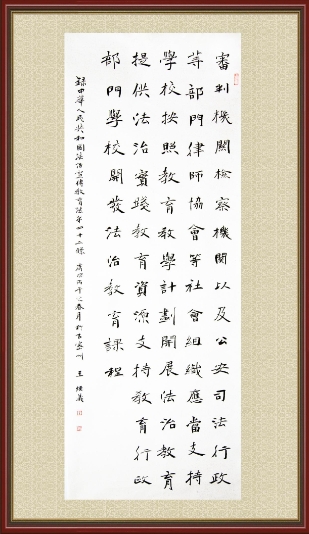 審判機關檢察機關以及公安司法行政
等部門律師協會等社會組織應當支持
學校按照教育教學計劃開展法治教育
提供法治實踐教育資源支持教育行政
部門學校開發法治教育課程
錄中華人民共和國法治宣傳教育法第四十二條 歲次丙午之春月於